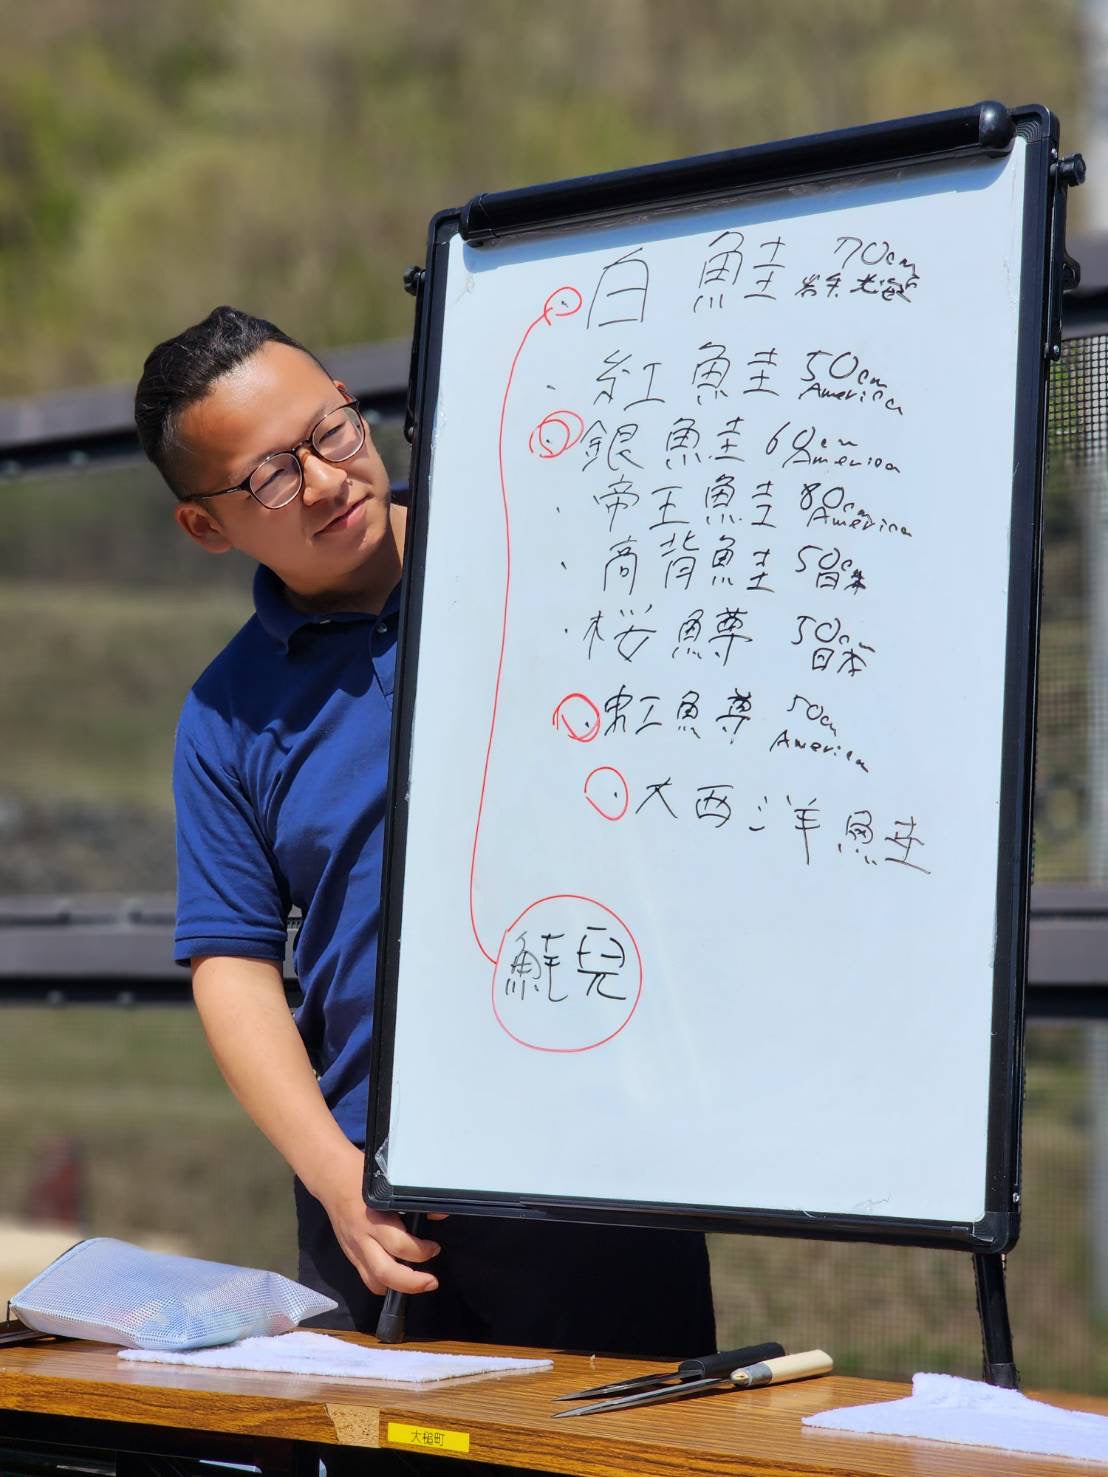 ・白鮭 70cm
岩手 北海道
・紅鮭 50cm
America
・銀鮭 60cm
America
・帝王鮭 80cm
America
・高背鮭 50cm
日本
・桜鱒 50cm
日本
・虹鱒 50cm
America
・大西洋鮭
鮭児
大槌町